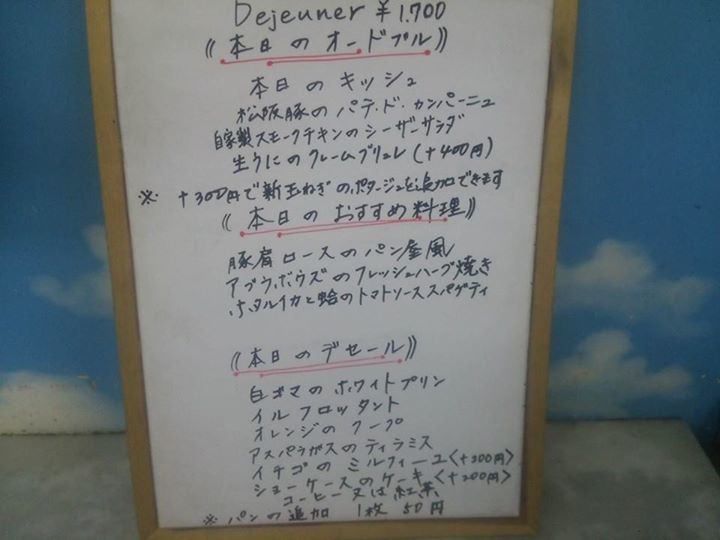 Dejeuner ¥1.700
《本日のオードブル》
本日のキッシュ
松阪豚のパテ・ド・カンパーニュ
自家製スモークチキンのシーザーサラダ
生うにのクレームブリュレ(+400円)
※ +300円で新玉ねぎのポタージュを追加できます
《本日のおすすめ料理》
豚肩ロースのパン釜風
アブラボウズのフレッシュハーブ焼き
ホタルイカと蛤のトマトソーススパゲティ
《本日のデセール》
白ゴマのホワイトプリン
イルフロッタント
オレンジのクープ
アスパラガスのティラミス
イチゴのミルフィーユ<+200円>
ショーケースのケーキ<+200円>
コーヒー又は紅茶
※ パンの追加 1枚 50円